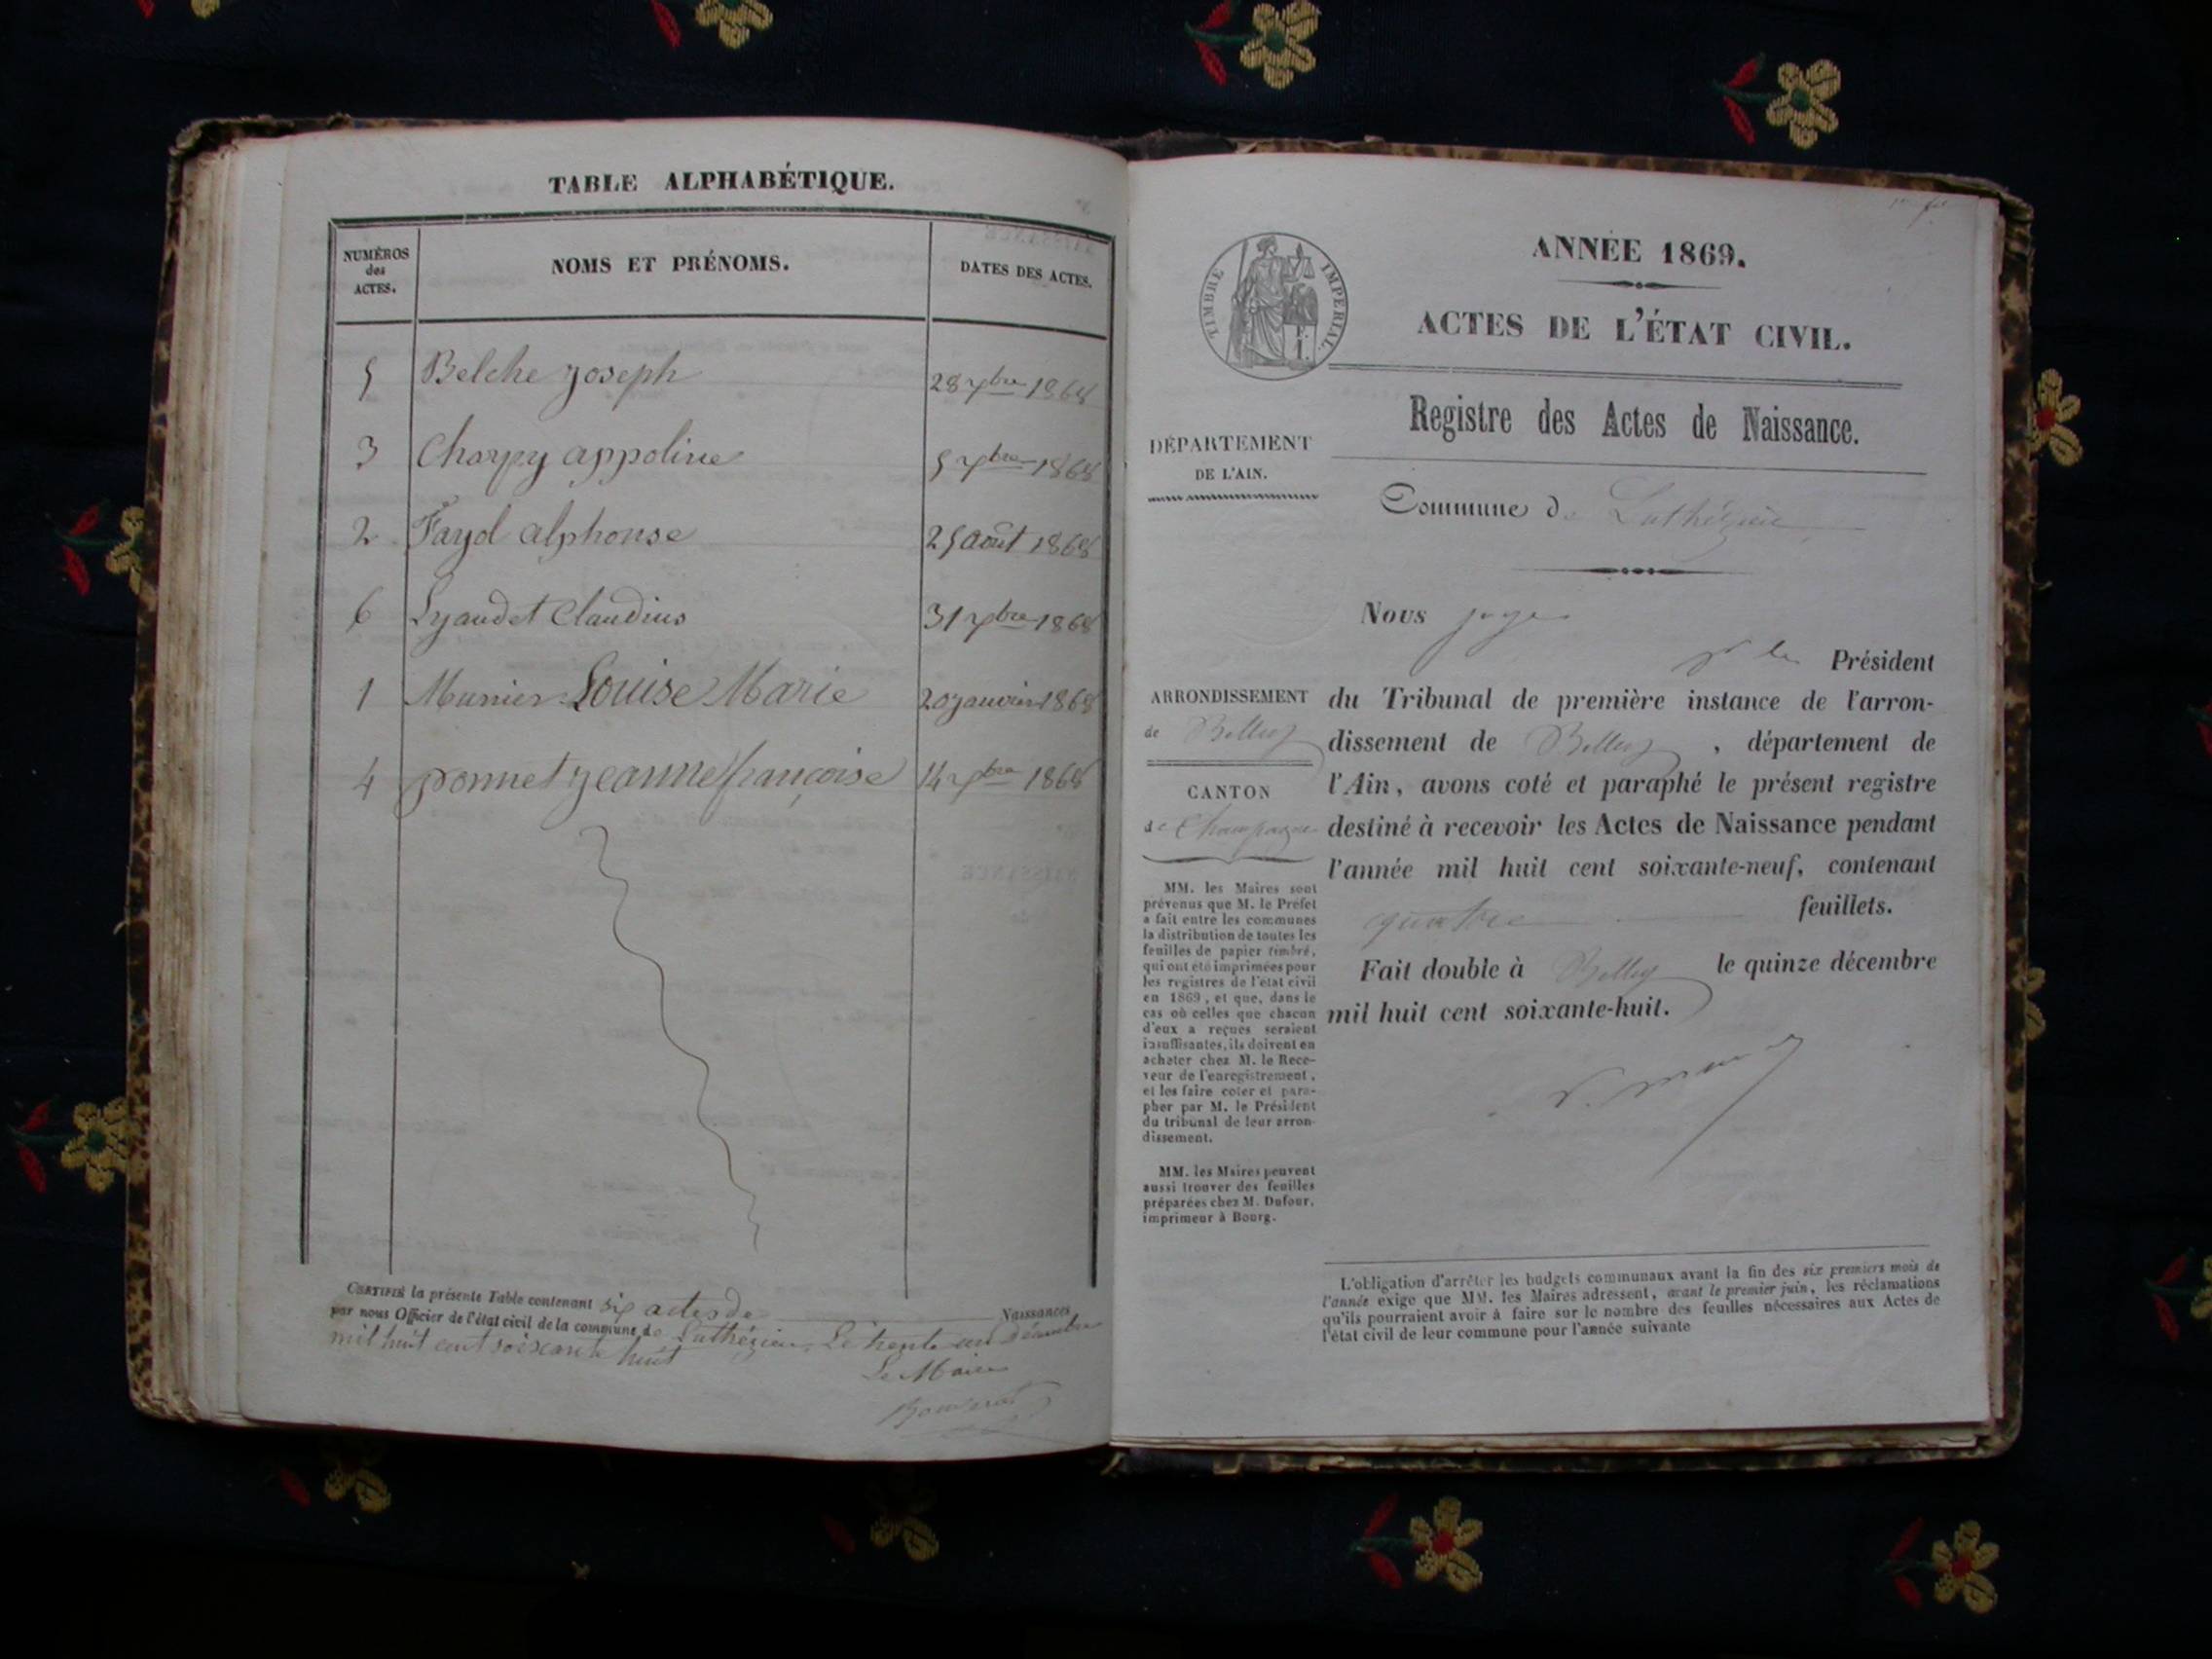 TABLE ALPHABÉTIQUE.
NUMÉROS des ACTES.
NOMS ET PRÉNOMS.
DATES DES ACTES.
5 Belche Joseph 28 xbre 1868
3 Charpy appoline 5 xbre 1868
2 Fayol alphonse 25 août 1868
6 Lyaudet Claudius 31 xbre 1868
1 Munier Louise Marie 20 janvier 1868
4 ponnet jeanne françoise 14 xbre 1868
CERTIFIÉ la présente Table contenant six actes de Naissances
par nous Officier de l'état civil de la commune de Luthézieu, Le trente un décembre
mil huit cent soixante huit
Le Maire
ANNÉE 1869.
TIMBRE IMPERIAL
ACTES DE L'ÉTAT CIVIL.
Registre des Actes de Naissance.
DÉPARTEMENT
DE L'AIN.
Commune de Luthézieu
Nous juge
Président
ARRONDISSEMENT
de Belley
CANTON
de Champagne
du Tribunal de première instance de l'arron-
dissement de Belley, département de
l'Ain, avons coté et paraphé le présent registre
destiné à recevoir les Actes de Naissance pendant
l'année mil huit cent soixante-neuf, contenant
quatre feuillets.
Fait double à Belley le quinze décembre
mil huit cent soixante-huit.
MM. les Maires sont
prévenus que M. le Préfet
a fait entre les communes
la distribution de toutes les
feuilles de papier timbré,
qui ont été imprimées pour
les registres de l'état civil
en 1869, et que, dans le
cas où celles que chacun
d'eux a reçues seraient
insuffisantes, ils doivent en
acheter chez M. le Rece-
veur de l'enregistrement,
et les faire coter et para-
pher par M. le Président
du tribunal de leur arron-
dissement.
MM. les Maires peuvent
aussi trouver des feuilles
préparées chez M. Dufour,
imprimeur à Bourg.
L'obligation d'arrêter les budgets communaux avant la fin des six premiers mois de
l'année exige que MM. les Maires adressent, avant le premier juin, les réclamations
qu'ils pourraient avoir à faire sur le nombre des feuilles nécessaires aux Actes de
l'état civil de leur commune pour l'année suivante